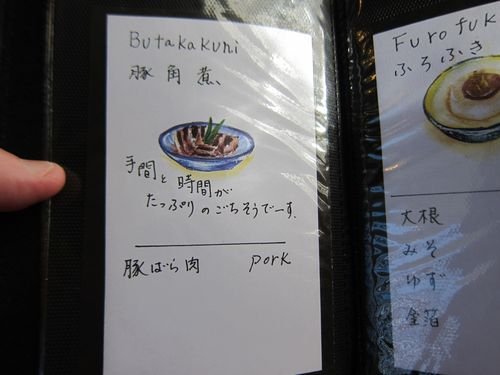 Butakakuni
豚角煮、
手間と時間が
たっぷりのごちそうでーす.
豚ばら肉 pork
Furofuk
ふろふき
大根
みそ
ゆず
金箔